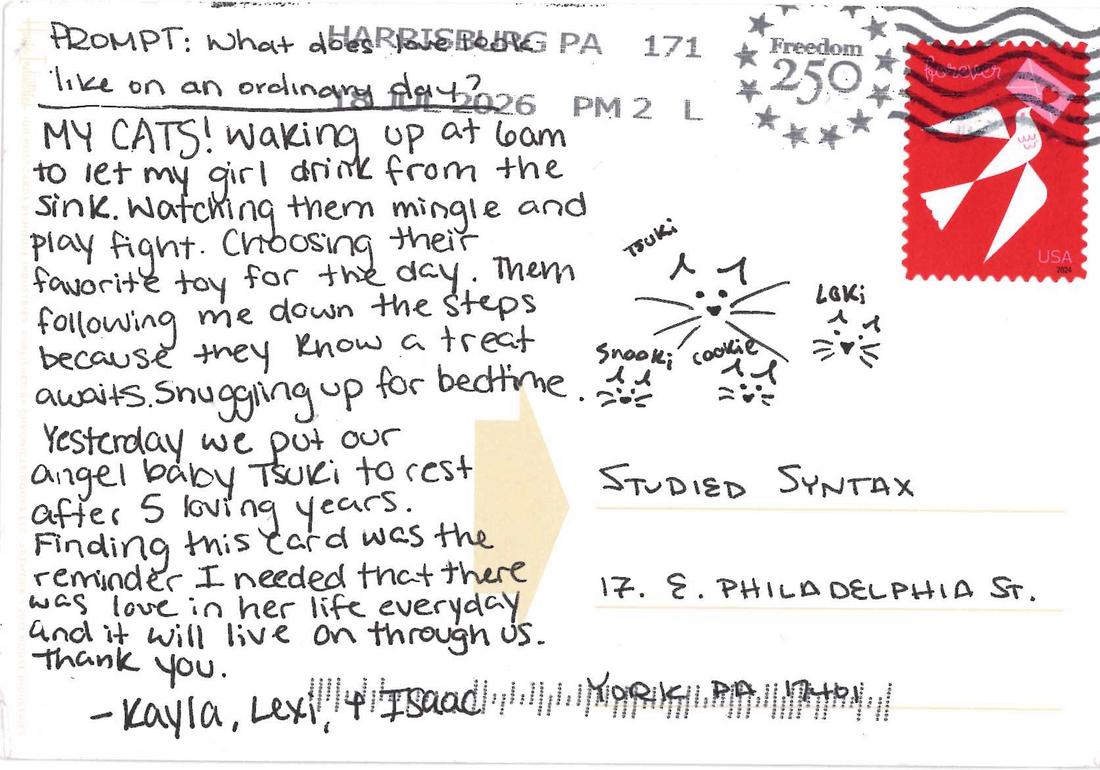 PROMPT: What does love look
like on an ordinary day?
HARRISBURG PA 171
18 JUL 2026 PM 2 L
Freedom
250
forever
USA
2024
MY CATS! Waking up at 6am
to let my girl drink from the
sink. Watching them mingle and
play fight. Choosing their
favorite toy for the day. Them
following me down the steps
because they know a treat
awaits. Snuggling up for bedtime.
Yesterday we put our
angel baby Tsuki to rest
after 5 loving years.
Finding this card was the
reminder I needed that there
was love in her life everyday
and it will live on through us.
Thank you.
- Kayla, Lexi, + Isaac
Tsuki
Loki
Snooki
Cookie
STUDIED SYNTAX
17. E. PHILADELPHIA ST.
YORK PA 17401